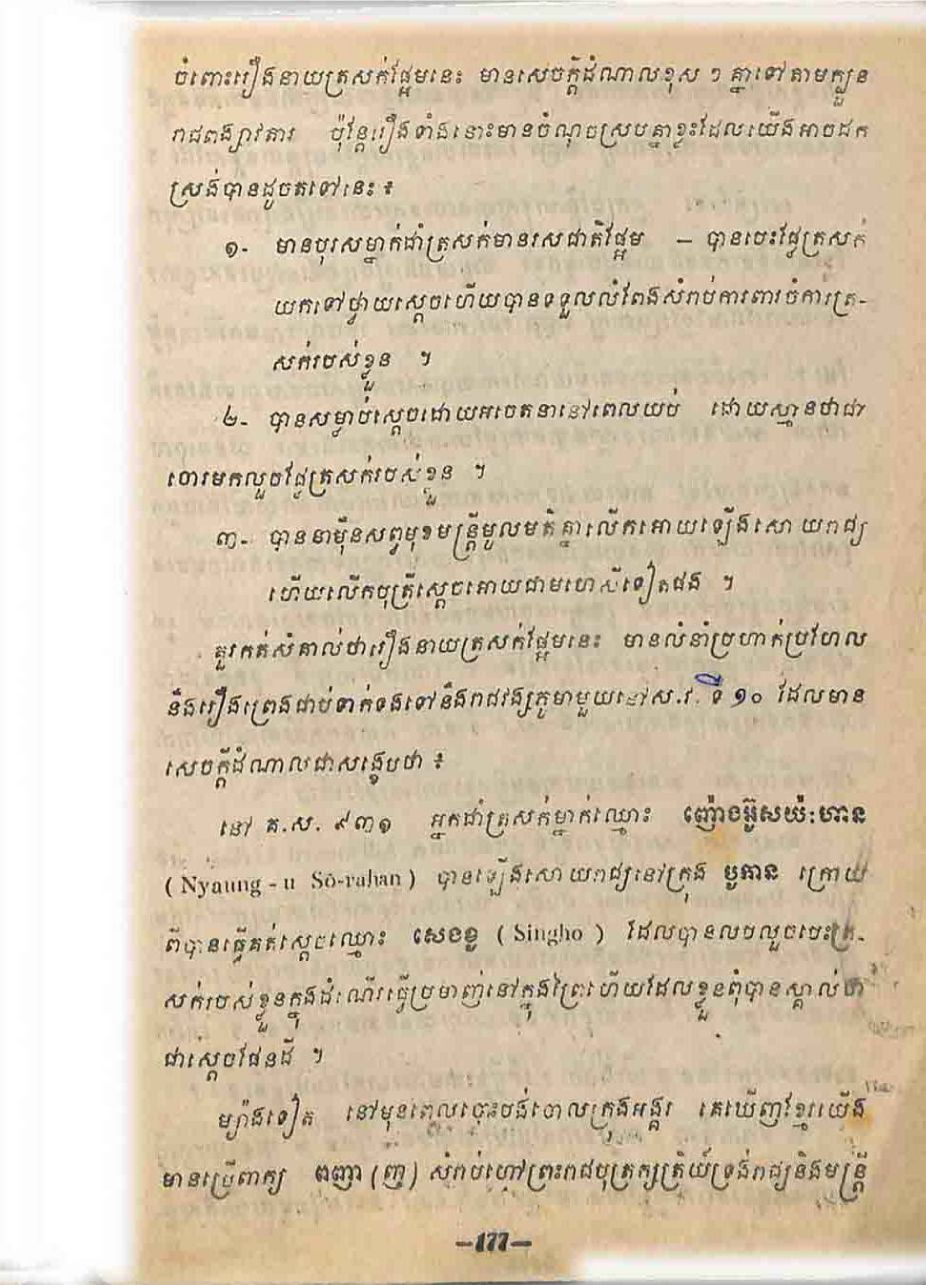 ចំពោះរឿងនាយត្រសក់ផ្អែមនេះ មានសេចក្ដីដំណាលខុស ៗ គ្នាទៅតាមក្បួន
រាជពង្សាវតារ ប៉ុន្តែរឿងទាំងនោះមានចំណុចស្របគ្នាខ្លះដែលយើងអាចដក
ស្រង់បានដូចតទៅនេះ ៖
១- មានបុរសម្នាក់ដាំត្រសក់មានរសជាតិផ្អែម – បានបេះផ្លែត្រសក់
យកទៅថ្វាយស្ដេចហើយបានទទួលលំពែងសំរាប់ការពារចំការត្រ-
សក់របស់ខ្លួន ។
២- បានសម្លាប់ស្ដេចដោយអចេតនានៅពេលយប់ ដោយស្មានថាជា
ចោរមកលួចផ្លែត្រសក់របស់ខ្លួន ។
៣- បាននាម៉ឺនសព្វមុខមន្ត្រីមូលមតិគ្នាលើកអោយឡើងសោយរាជ្យ
ហើយលើកបុត្រីស្ដេចអោយជាមហេសីទៀតផង ។
គួរកត់សំគាល់ថារឿងនាយត្រសក់ផ្អែមនេះ មានលំនាំប្រហាក់ប្រហែល
នឹងរឿងព្រេងជាប់ទាក់ទងទៅនឹងរាជវង្សភូមាមួយនៅស.វ. ទី ១០ ដែលមាន
សេចក្ដីដំណាលជាសង្ខេបថា ៖
នៅ គ.ស. ៩៣១ អ្នកដាំត្រសក់ម្នាក់ឈ្មោះ ញ៉ោងអ៊ូសយ៉ះហាន
( Nyaung - u Sô-rahan ) បានឡើងសោយរាជ្យនៅក្រុង បូកាន ក្រោយ
ពីបានធ្វើគត់ស្ដេចឈ្មោះ សេងខូ ( Singho ) ដែលបានលបលួចបេះត្រ-
សក់របស់ខ្លួនក្នុងដំណើរធ្វើប្រមាញ់នៅក្នុងព្រៃហើយដែលខ្លួនពុំបានស្គាល់ថា
ជាស្ដេចផែនដី ។
ម្យ៉ាងទៀត នៅមុនពេលបោះបង់ចោលក្រុងអង្គរ គេឃើញខ្មែរយើង
មានប្រើពាក្យ ពញា (ញ) សំរាប់ហៅព្រះរាជបុត្រក្សត្រិយ៍ទ្រង់រាជ្យនិងមន្ត្រី
–177–